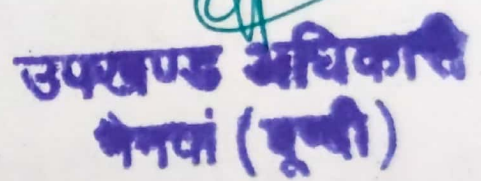 उपखण्ड अधिकारी
नैनवां (बून्दी)